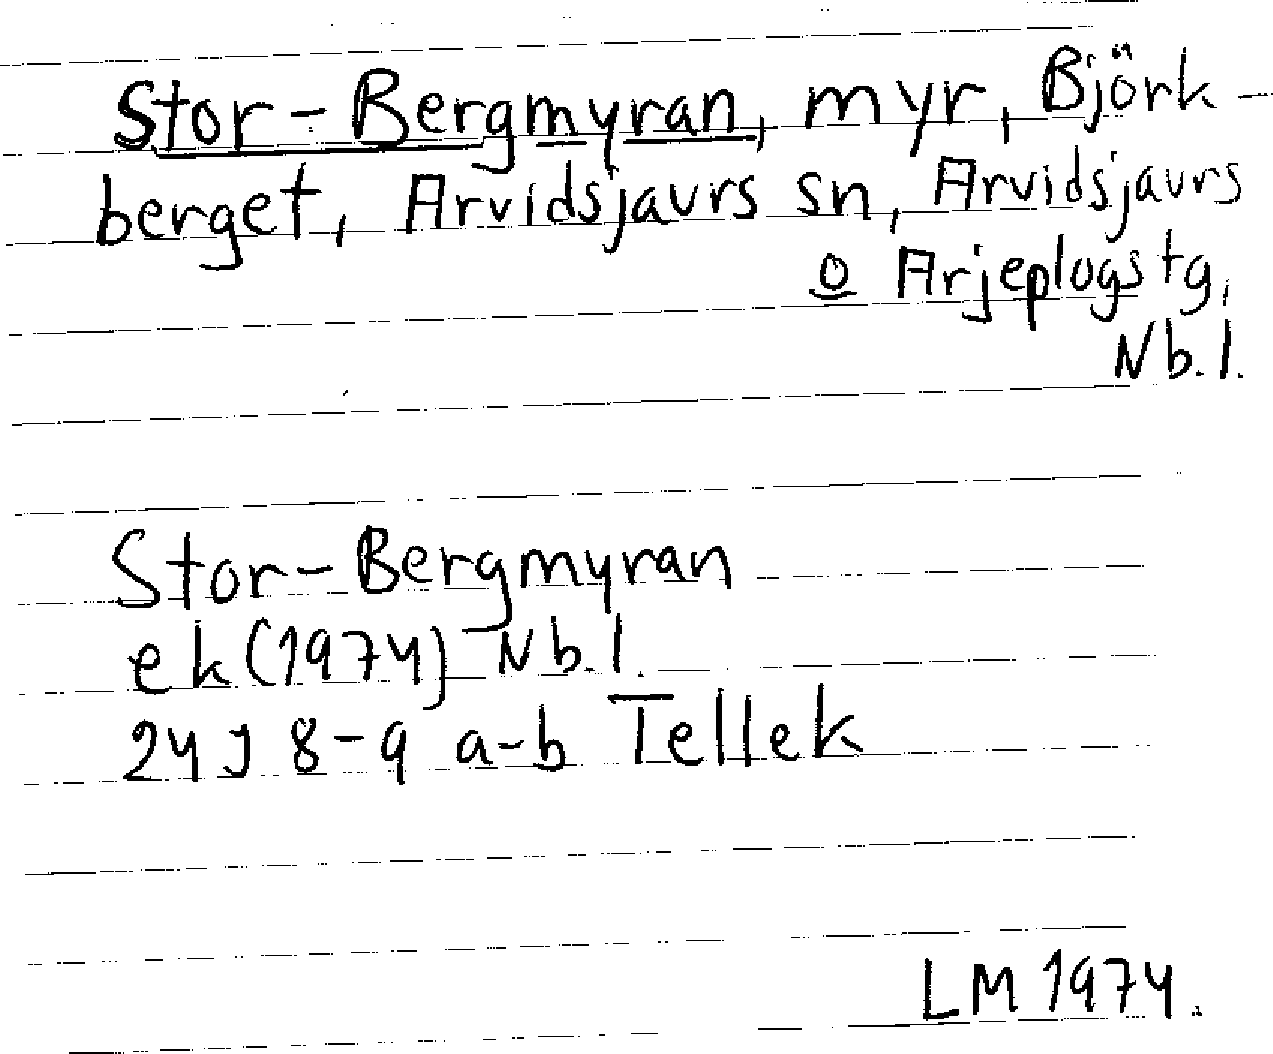 Stor-Bergmyran, myr, Björk-
berget, Arvidsjaurs sn, Arvidsjaurs
o Arjeplogs tg,
Nb.l.
Stor-Bergmyran
ek (1974) Nb.l.
24J 8-9 a-b Tellek
LM 1974.